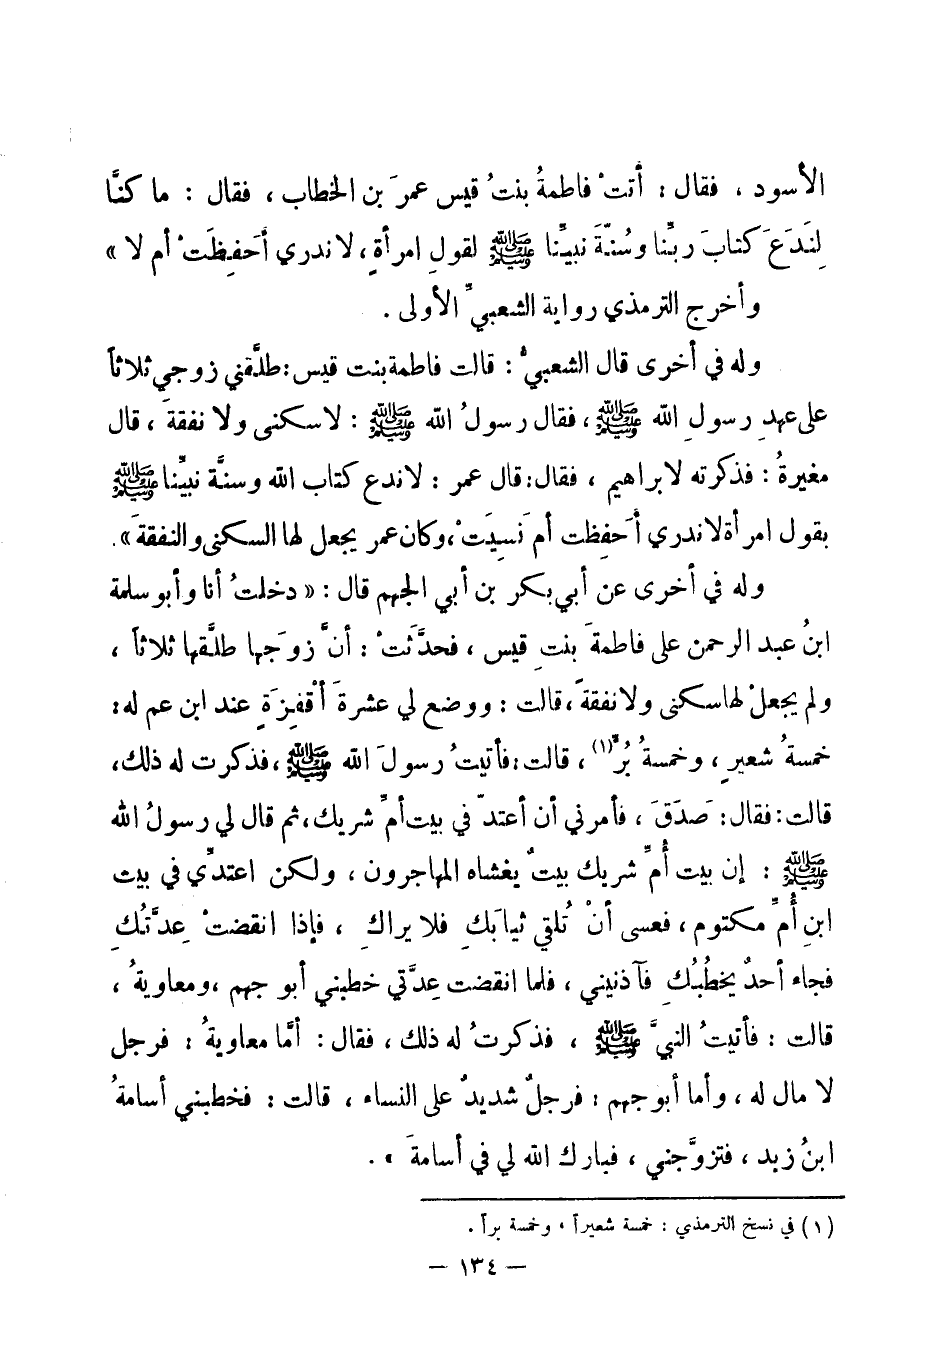 الأسود ، فقال : أتتْ فاطمةُ بنتُ قيس عمرَ بن الخطاب ، فقال : ما كنَّا
لِنَدَعَ كتابَ ربِّنا وسُنَّةَ نبيِّنا ﷺ لقولِ امرأةٍ ، لاندري أحَفِظَتْ أم لا »
وأخرج الترمذي رواية الشعبيِّ الأولى .
وله في أخرى قال الشعبيُّ : قالت فاطمة بنت قيس : طلَّقني زوجي ثلاثاً
على عهدِ رسولِ الله ﷺ ، فقال رسولُ الله ﷺ : لاسكنى ولا نفقةَ ، قال
مغيرةُ : فذكرته لابراهيم ، فقال : قال عمر : لاندع كتاب الله وسنَّة نبيِّنا ﷺ
بقول امرأة لاندري أحَفِظت أم نَسِيَتْ ، وكان عمر يجعل لها السكنى والنفقةَ » .
وله في أخرى عن أبي بكر بن أبي الجهم قال : « دخلتُ أنا وأبو سلمة
ابنُ عبد الرحمن على فاطمةَ بنتِ قيس ، فحدَّثتْ : أنَّ زوجَها طلَّقها ثلاثاً ،
ولم يجعلْ لها سكنى ولانفقةً ، قالت : ووضع لي عشرةَ أقْفِزَةٍ عند ابن عم له :
خمسةُ شعيرٍ ، وخمسةُ بُرٍّ (١) ، قالت : فأتيتُ رسولَ الله ﷺ ، فذكرت له ذلك ،
قالت : فقال : صَدَقَ ، فأمرني أن أعتدّ في بيت أمِّ شريك ، ثم قال لي رسولُ الله
ﷺ : إن بيت أُمِّ شريك بيتٌ يغشاه المهاجرون ، ولكن اعتدِّي في بيت
ابنِ أُمِّ مكتوم ، فعسى أنْ تُلقي ثيابَكِ فلا يراكِ ، فإذا انقضتْ عِدَّتُكِ
فجاء أحدٌ يخطُبُكِ فآذنيني ، فلما انقضت عِدَّتي خطبني أبو جهم ، ومعاويةُ ،
قالت : فأتيتُ النبيَّ ﷺ ، فذكرتُ له ذلك ، فقال : أمَّا معاويةُ : فرجل
لا مال له ، وأما أبو جهم : فرجلٌ شديدٌ على النساء ، قالت : فخطبني أسامةُ
ابنُ زيد ، فتزوَّجني ، فبارك الله لي في أسامةَ » .
(١) في نسخ الترمذي : خمسة شعيراً ، وخمسة براً .
— ١٣٤ —